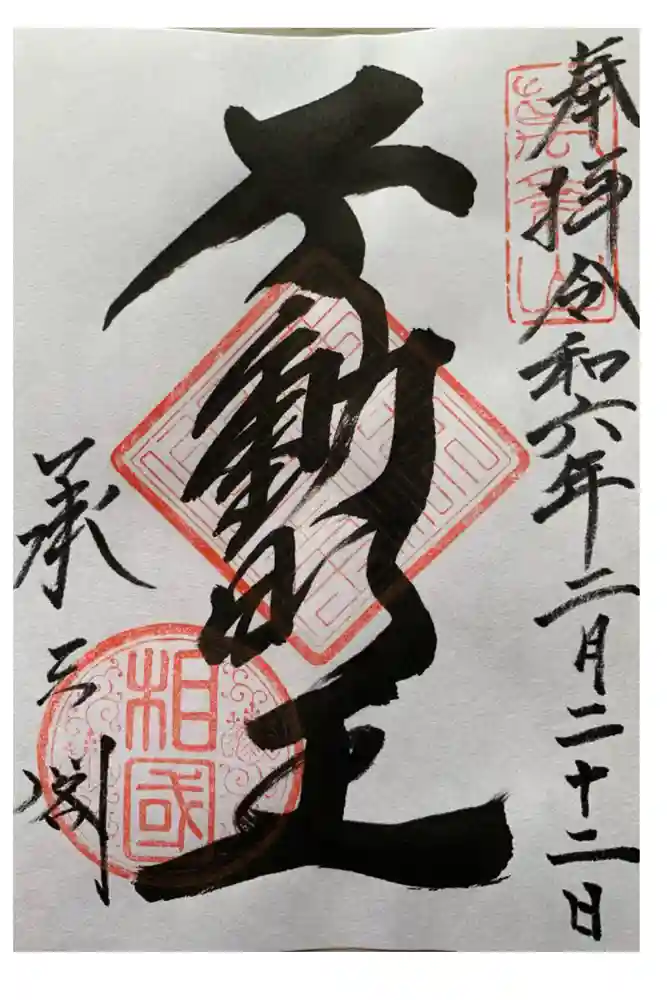 奉拝令和六年二月二十二日
不動明王
承天閣
相國